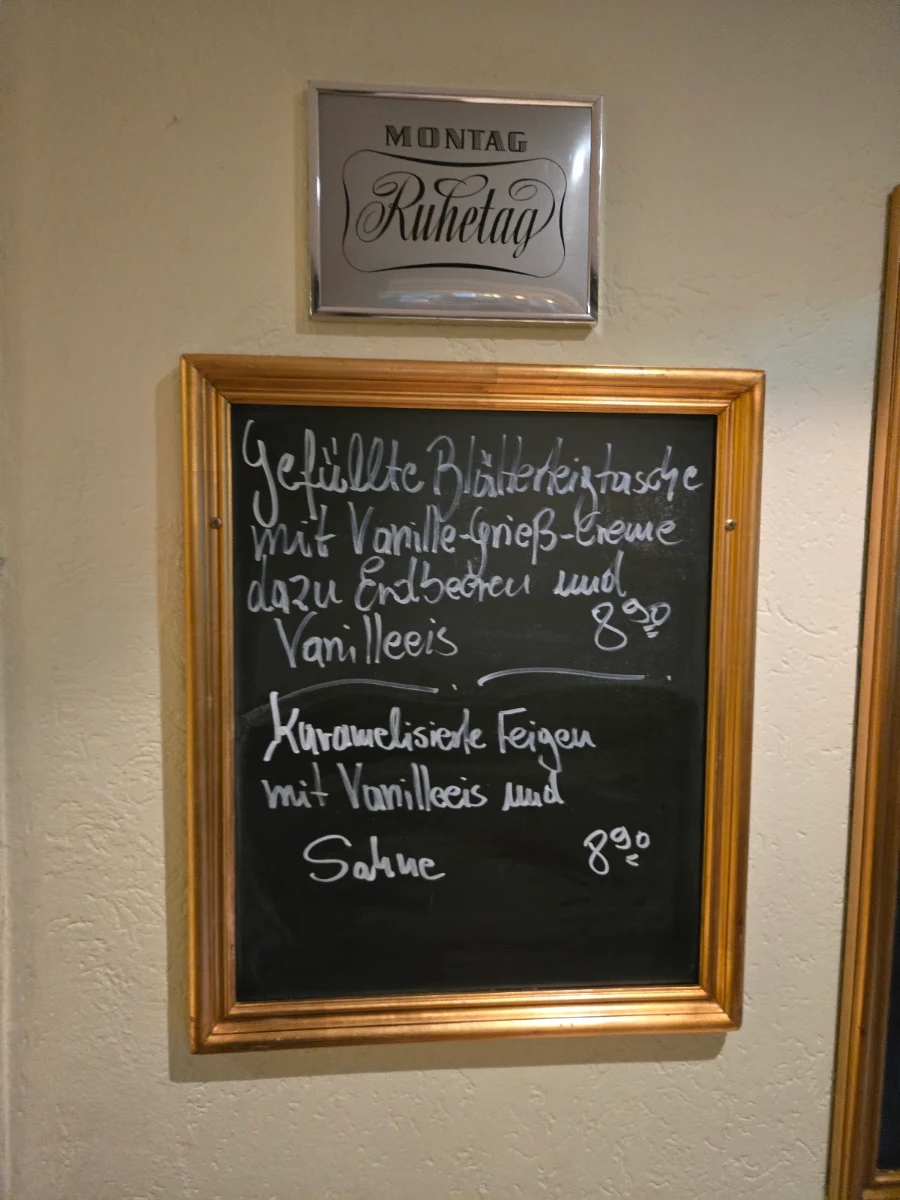 MONTAG
Ruhetag
Gefüllte Blätterteigtasche
mit Vanille-Grieß-Creme
dazu Erdbeeren und
Vanilleeis 8 90
Karamelisierte Feigen
mit Vanilleeis und
Sahne 8 90